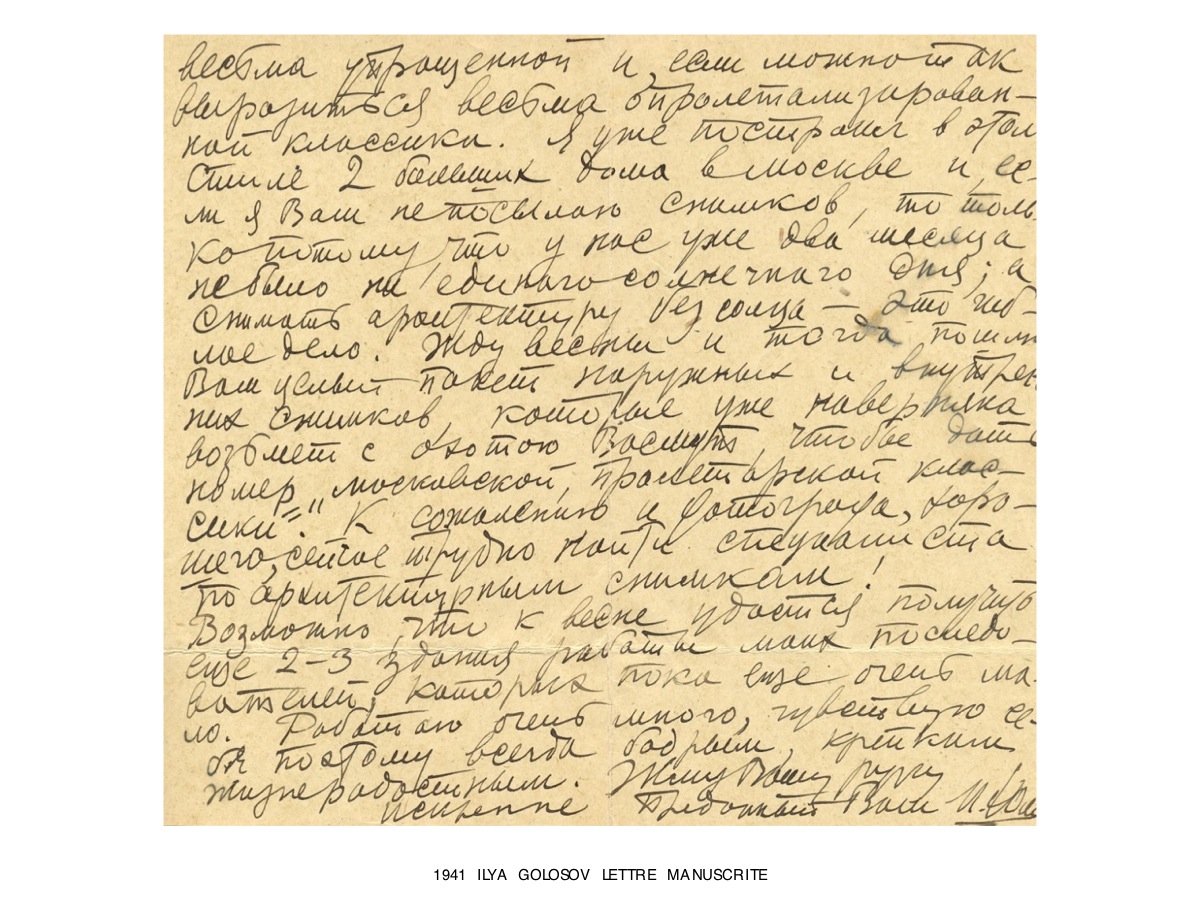 весьма упрощенной и, если можно так
выразиться весьма опролетализирован-
ной классики. Я уже построил в этом
стиле 2 больших дома в Москве и, ес-
ли я Вам не посылаю снимков, то толь-
ко потому, что у нас уже два месяца
не было ни единого солнечного дня; а
снимать архитектуру без солца — это гиб-
лое дело. Жду весны и тогда пошлю
Вам целый пакет наружных и внутрен-
них снимков, которые уже наверняка
возьмет с охотою, чтобы дать
номер „московской, пролетарской клас-
сики". К сожалению и фотографа, хоро-
шего, сейчас трудно найти специалиста
по архитектурным снимкам!
Возможно, что к весне удастся получить
еще 2-3 здания работы моих последо-
вателей, которых пока еще очень ма-
ло. Работаю очень много, чувствую се-
бя поэтому всегда бодрым, крепким
жизнерадостным. Жму Вашу руку
Искренне Преданный Ваш
1941 ILYA GOLOSOV LETTRE MANUSCRITE